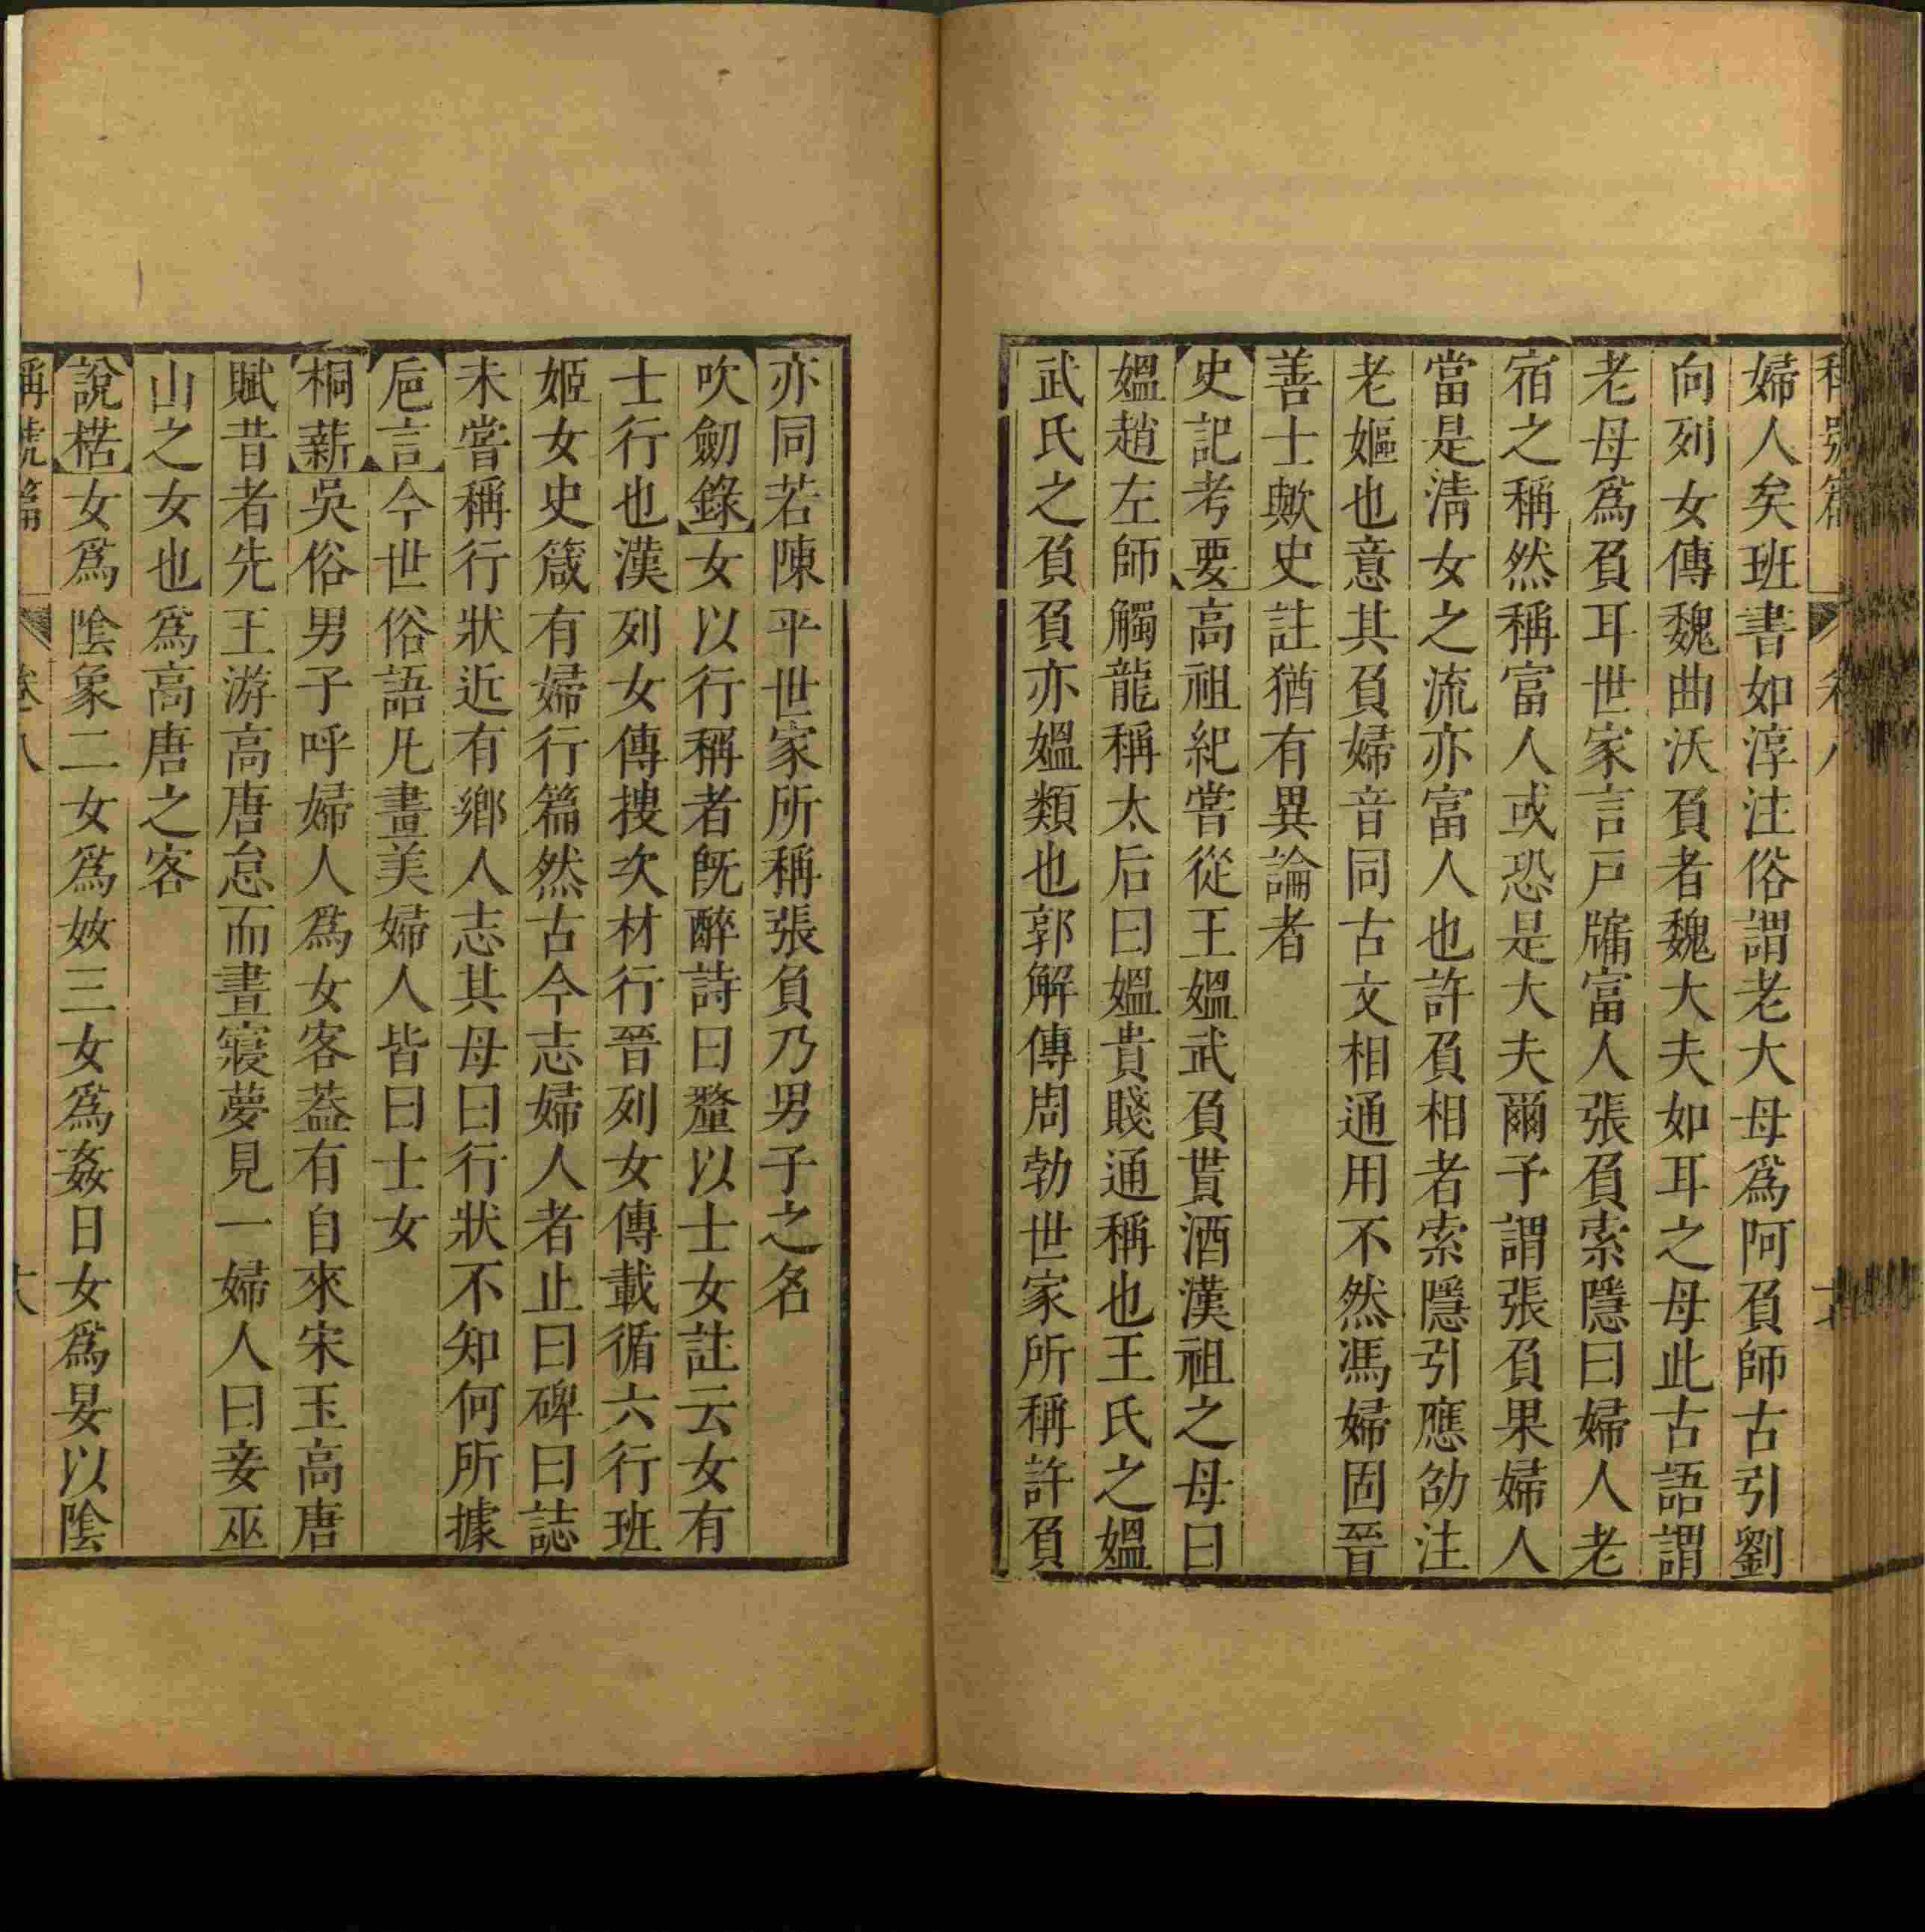 婦人矣班書如淳注俗謂老大母爲阿負師古引劉
向列女傳魏曲沃負者魏大夫如耳之母此古語謂
老母爲負耳世家言戸牖富人張負索隱曰婦人老
宿之稱然稱富人或恐是大夫爾予謂張負果婦人
當是淸女之流亦富人也許負相者索隱引應劭注
老嫗也意其負婦音同古文相通用不然馮婦固晉
善士歟史註猶有異論者
史記考要高祖紀嘗從王媼武負貰酒漢祖之母曰
媼趙左師觸龍稱太后曰媼貴賤通稱也王氏之媼
武氏之負負亦媼類也郭解傳周勃世家所稱許負
亦同若陳平世家所稱張負乃男子之名
吹劒錄女以行稱者旣醉詩曰釐以士女註云女有
士行也漢列女傳摟次材行晉列女傳載循六行班
姬女史箴有婦行篇然古今志婦人者止曰碑曰誌
未嘗稱行狀近有鄉人志其母曰行狀不知何所據
巵言今世俗語凡畫美婦人皆曰士女
桐薪吳俗男子呼婦人爲女客葢有自來宋玉高唐
賦昔者先王游高唐怠而晝寢夢見一婦人曰妾巫
山之女也爲高唐之客
說楛女爲陰象二女爲奻三女爲姦日女爲妟以陰
稱號篇 卷八